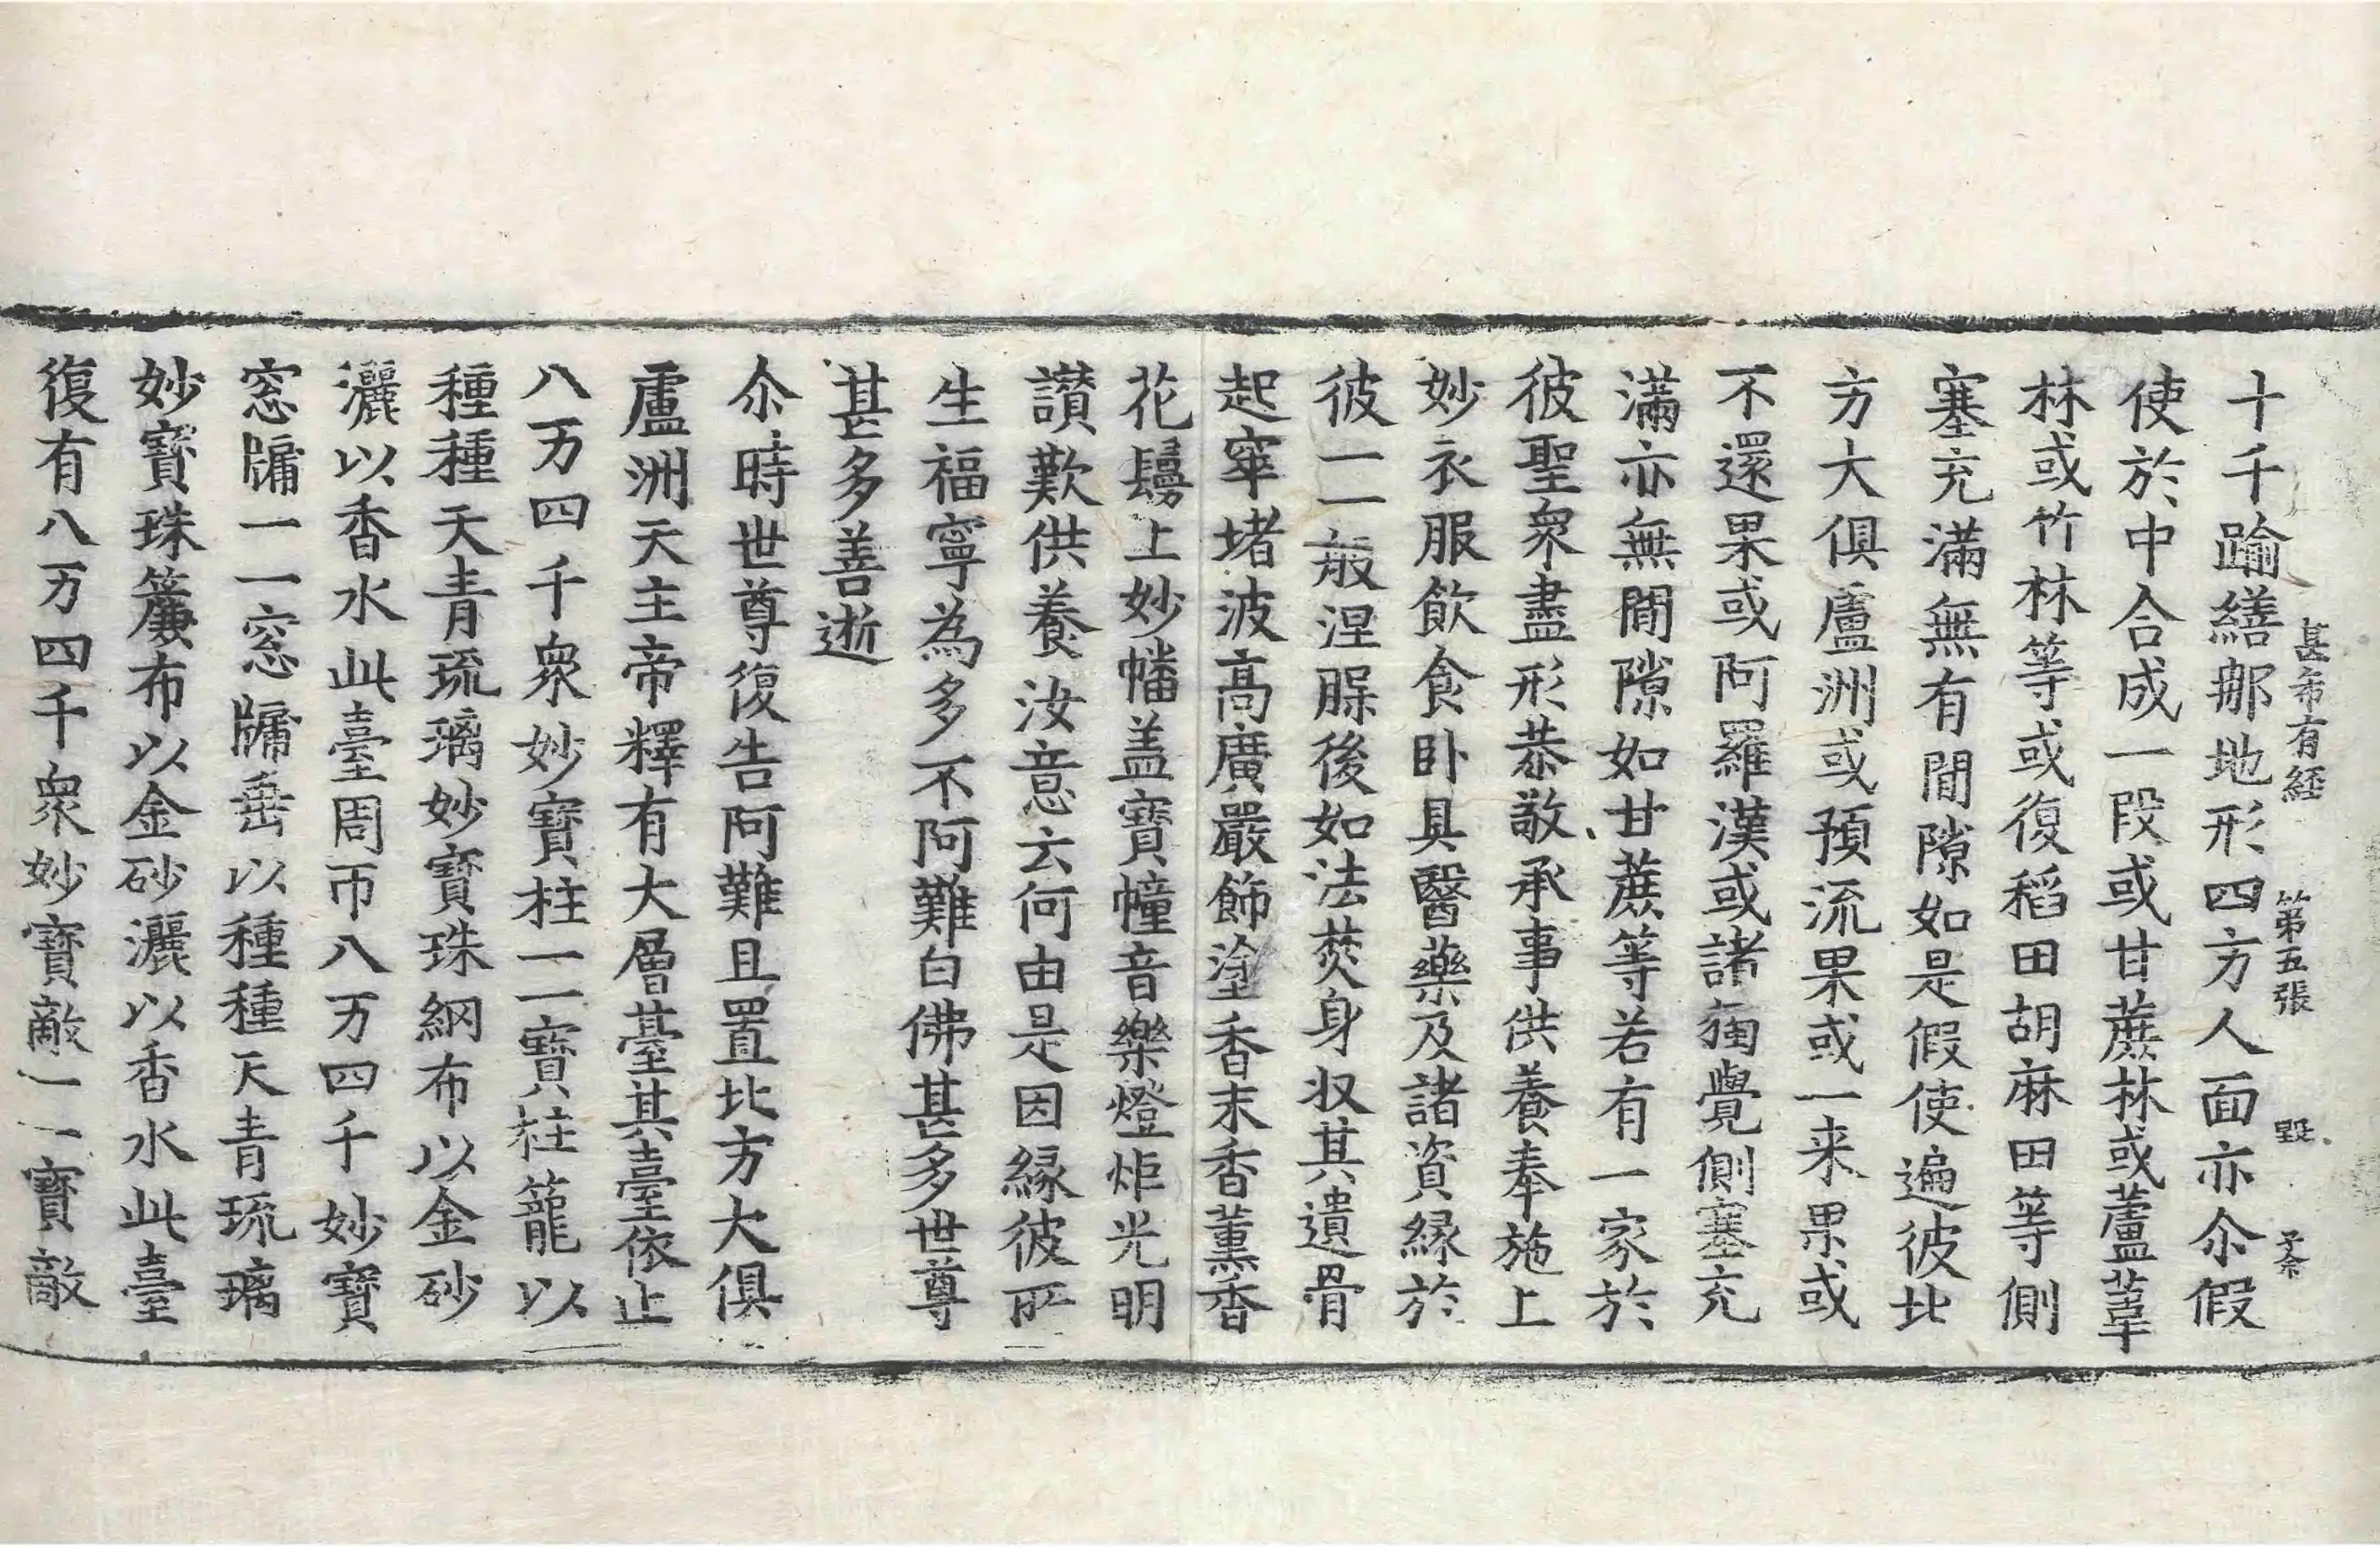 甚希有経 第五張 毀
十千踰繕那地形四方人面亦尒假
使於中合成一段或甘蔗林或蘆葦
林或竹林等或復稻田胡麻田等側
塞充滿無有間隙如是假使遍彼北
方大俱盧洲或預流果或一来果或
不還果或阿羅漢或諸獨覺側塞充
滿亦無間隙如甘蔗等若有一家於
彼聖衆盡形恭敬承事供養奉施上
妙衣服飲食卧具醫藥及諸資縁於
彼一一般涅槃後如法焚身収其遺骨
起窣堵波高廣嚴飾塗香末香薰香
花鬘上妙幡盖寶幢音樂燈炬光明
讃歎供養汝意云何由是因縁彼所
生福寧為多不阿難白佛甚多世尊
甚多善逝
尒時世尊復告阿難且置北方大俱
盧洲天主帝釋有大層臺其臺依止
八万四千衆妙寶柱一一寶柱籠以
種種天青琉璃妙寶珠網布以金砂
灑以香水此臺周帀八万四千妙寶
窓牖一一窓牖垂以種種天青琉璃
妙寶珠簾布以金砂灑以香水此臺
復有八万四千衆妙寶敵一一寶敵